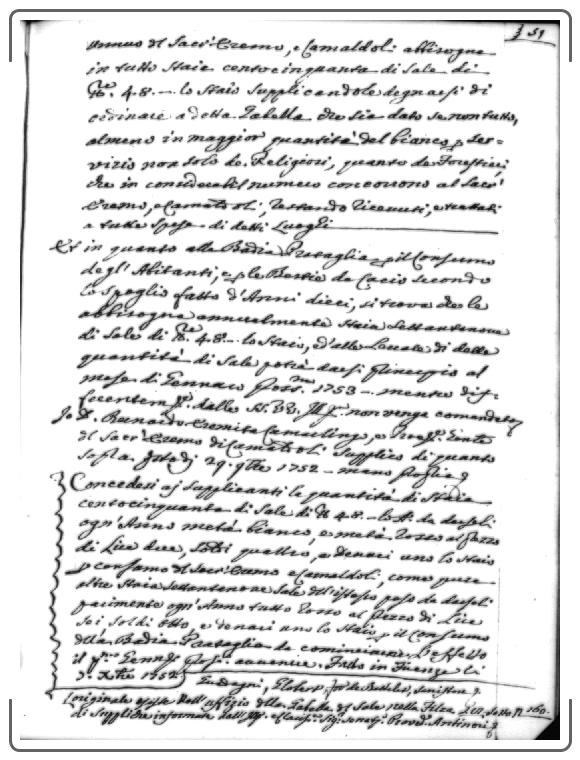 51
annuo del Sacr' Eremo, e Camaldoli abbisogna
in tutto Staia centocinquanta di Sale di
48 lo Staio Supplicandole degnarsi di
ordinare a detta Tabella che sia dato se non tutto,
almeno in maggior quantità del bianco p ser=
vizio non solo de Religiosi, quanto de Forestieri,
che in considerabil numero concorrono al Sacr'
Eremo, e Camaldoli, restando ricevuti, e trattati
a tutte Spese di detti Luoghi
Et in quanto alla Badia Prataglia p il Consumo
degl' Abitanti, e p le Bestie da Cacio secondo
lo Spoglio fatto d'Anni dieci, si trova che le
abbisogna annualmente Staia Settantanove
di Sale di 48 lo Staio, e d'alle Locate di dette
quantità di Sale potrà darsi Principio al
mese di Gennaro 1753 mentre dif=
ferentem. dalle non venga comandato
Io D. Bernardo Eremita Camaldino, e
del Sacr' Eremo di Camaldoli Supplico di quanto
sopra. 29 9bre 1752 mano propria
Concedesi a i Supplicanti la quantità di Staia
centocinquanta di Sale di 48 lo St. da darseli
ogn' Anno metà bianco, e metà rosso al prezzo
di Lire due, Soldi quattro, e denari uno lo Staio
p consumo del Sacr' Eremo e Camaldoli, come pure
altre Staia Settantanove Sale dell'istesso peso da darseli
parimente ogn' Anno tutto rosso al prezzo di Lire
Soldi otto, e denari uno lo Staio, p il Consumo
della Badia Prataglia da cominciarne L'effetto
il p.mo Genn. avvenire. Fatto in Firenze li
Xbre 1752
Originale esiste nell' uffizio della Gabella del Sale nella Filza sotto N. 160.
di Suppliche informate dall' Sig. Prov. Antinori